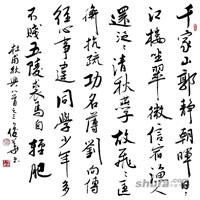 千家山郭靜朝暉日日
江樓坐翠微信宿漁人
還泛泛清秋燕子故飛飛匡
衡抗疏功名薄劉向傳
經心事違同學少年多
不賤五陵裘馬自輕肥
杜甫秋興八首之三